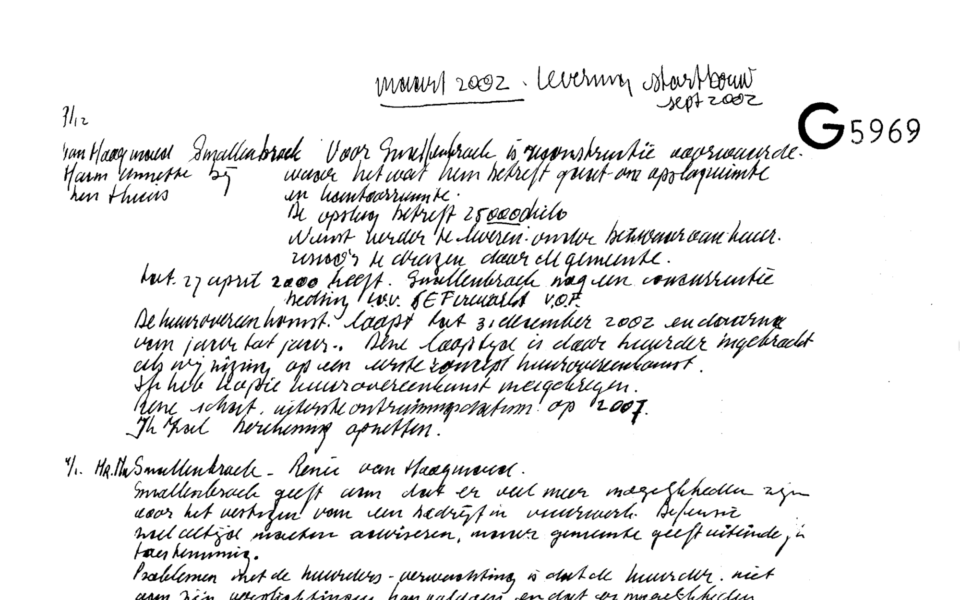 maart 2002 - levering startbouw
sept 2002
7/12
G5969
van Haagmoed Smallenbroek Voor Smallenbroek is reconstructie voorwaarde.
Harm Annette bij waar het wat hem betreft gaat om opslagruimte
hen thuis en kantoorruimte.
De opslag betreft 25000 kilo
te leveren. onder beheer van huur.
te dragen door de gemeente.
tot. 27 april 2000 heeft. Smallenbroek nog een concurrentie
beding t.o.v. SE Fireworks V.O.F.
De huurovereenkomst. loopt tot 31 december 2002 en daarna
van jaar tot jaar.. Deze looptijd is door huurder ingebracht
als wijziging op een eerste concept huurovereenkomst.
Ik heb kopie huurovereenkomst meegekregen.
Rene schat. uiterste ontruimingsdatum op 2007.
Ik zal berekening opzetten.
4/1. Smallenbroek - Renie van Haagmoed.
Smallenbroek geeft aan dat er veel meer mogelijkheden zijn
voor het vestigen van een bedrijf in vuurwerk. Defensie
zal altijd moeten adviseren, maar gemeente geeft uiteindelijk
toestemming.
Problemen met de huurders - verwachting is dat de huurder. niet
aan zijn verplichtingen kan voldoen en dat er mogelijkheden